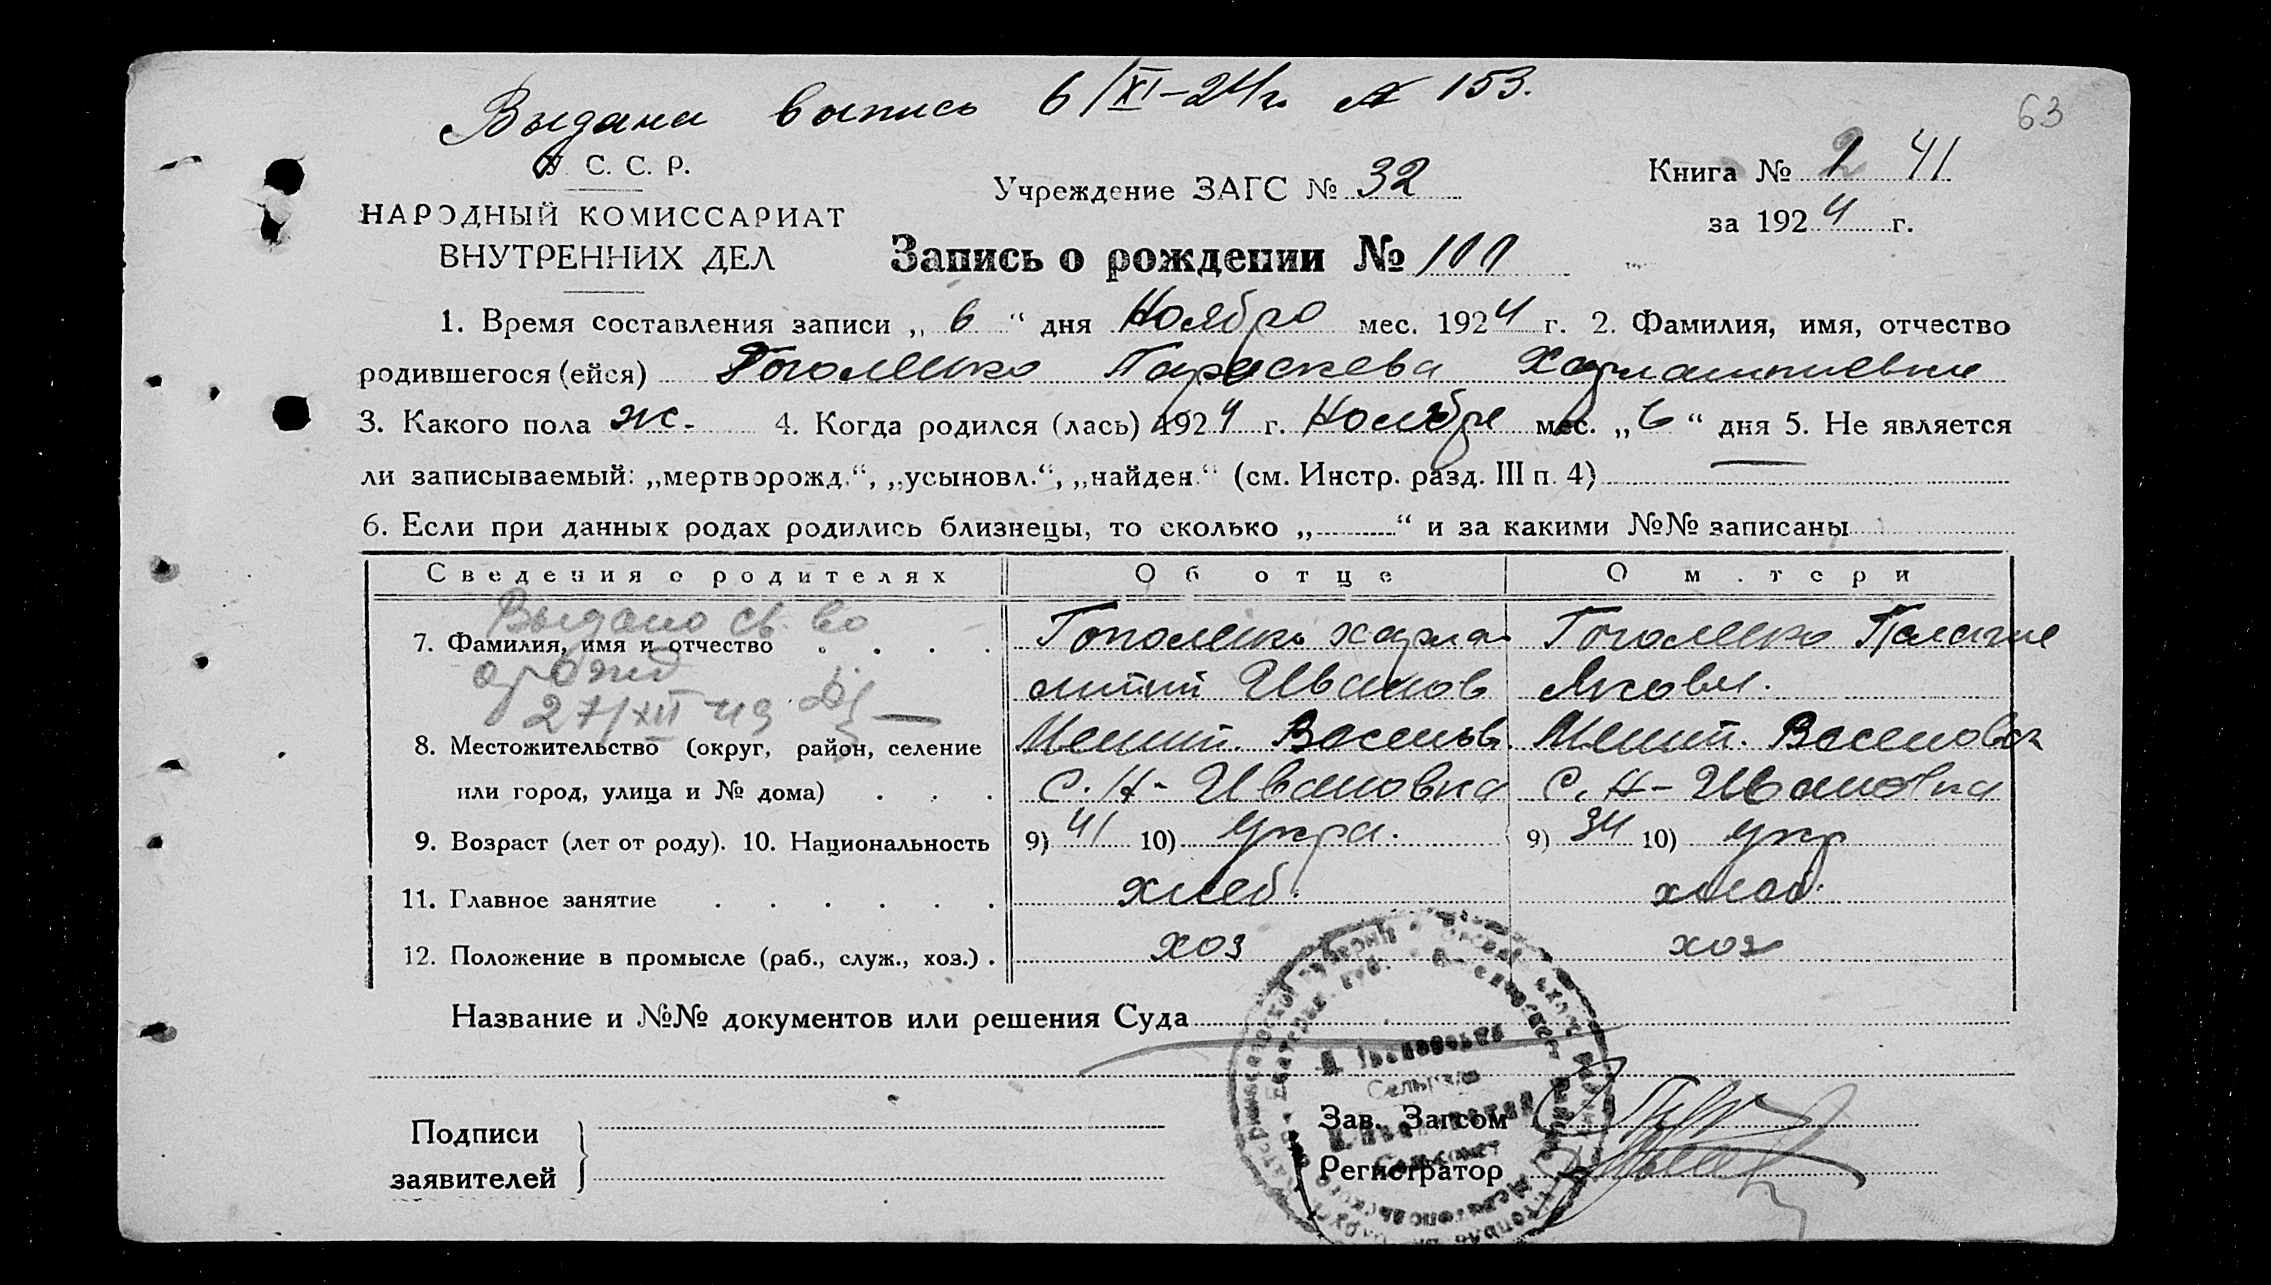 Выдана выпись 6/XI-24г. № 153.
63
У. С. С. Р.
НАРОДНЫЙ КОМИССАРИАТ
ВНУТРЕННИХ ДЕЛ
Учреждение ЗАГС № 32
Книга № 1 41
за 1924 г.
Запись о рождении № 100
1. Время составления записи „ 6 “ дня Ноября мес. 1924 г. 2. Фамилия, имя, отчество
родившегося (ейся) Тополенко Параскева Харлампиевна
3. Какого пола ж. 4. Когда родился (лась) 1924 г. Ноября мес. „ 6 “ дня 5. Не является
ли записываемый: „мертворожд.“, „усыновл.“, „найден.“ (см. Инстр. разд. III п. 4)
6. Если при данных родах родились близнецы, то сколько „ “ и за какими №№ записаны
Сведения о родителях Об отце О матери
Выдано св-во
7. Фамилия, имя и отчество Тополенко Харла- Тополенко Пелагие
о рожд ампий Иванов Яковл.
27/XII 49
8. Местожительство (округ, район, селение Мелит. Васильв. Мелит. Василовск
или город, улица и № дома) С. Н-Ивановка С. Н-Ивановка
9. Возраст (лет от роду). 10. Национальность 9) 41 10) Укра. 9) 34 10) Укр
11. Главное занятие хлеб. хлеб.
12. Положение в промысле (раб., служ., хоз.) хоз хоз
Название и №№ документов или решения Суда
Подписи
заявителей
Зав. Загсом
Регистратор